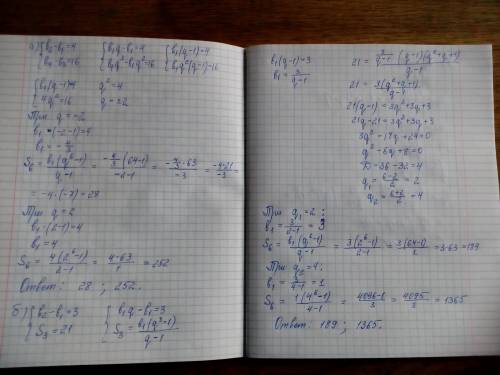 а) { b₂-b₁=4 { b₁q-b₁=4 { b₁(q-1)=4
b₄-b₃=16 b₁q³-b₁q²=16 b₁q²(q-1)=16
{ b₁(q-1)=4 q²=4
4q²=16 q=±2
При q=-2
b₁·(-2-1)=4
b₁=-4/3
= -4·(-7)=28
При q=2
b₁·(2-1)=4
b₁=4
S₆ = 4(2⁶-1)/2-1 = 4·63/1 = 252
Ответ: 28; 252.
б) { b₂-b₁=3 { b₁q-b₁=3
S₃=21 S₃ = b₁(q³-1)/q-1
b₁(q-1)=3
b₁ = 3/q-1
21 = 3/q-1 (q-1)(q²+q+1)/q-1
21 = 3(q²+q+1)/q-1
21(q-1)=3q²+3q+3
21q-21=3q²+3q+3
3q²-18q+24=0
q²-6q+8=0
D=36-32=4
q₁ = 6-2/2 = 2
q₂ = 6+2/2 = 4
При q₁=2:
b₁ = 3/2-1 = 3
S₆ = b₁(q⁶-1)/q-1 = 3(2⁶-1)/2-1 = 3(64-1)/1 = 3·63=189
При q₂=4:
b₁ = 3/4-1 = 1
S₆ = 1(4⁶-1)/4-1 = 4096-1/3 = 4095/3 = 1365
Ответ: 189; 1365.